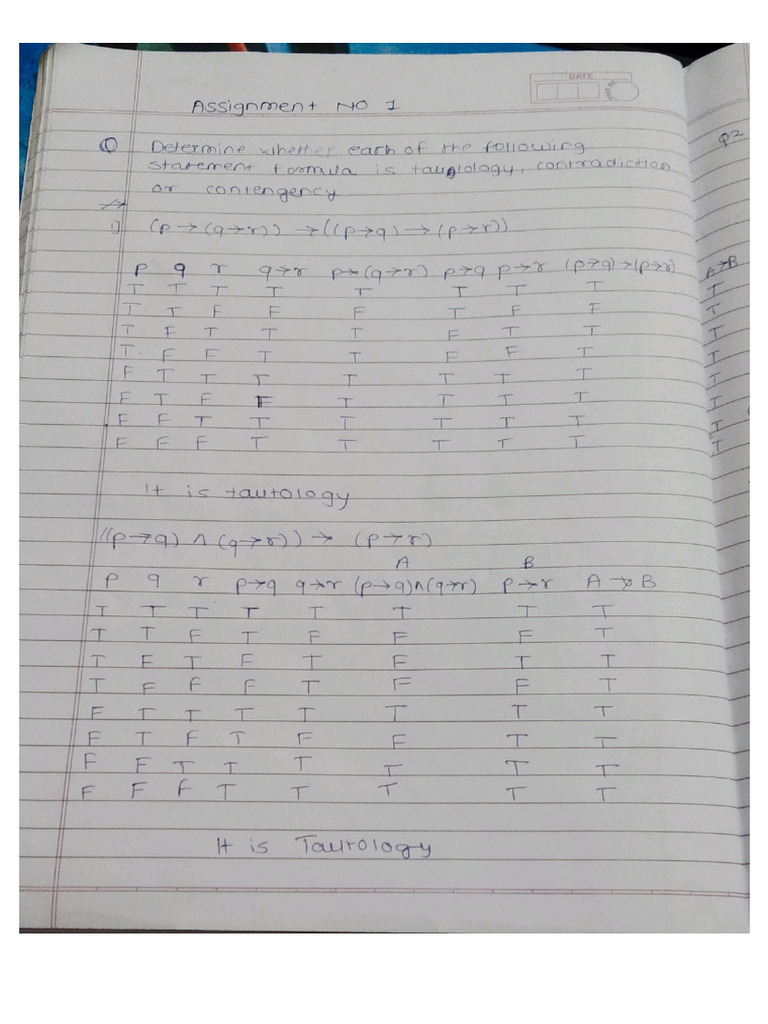 DATE
Assignment NO 1
Q Determine whether each of the following
statement formula is tautology, contradiction
or contengency
1) (p→(q→r)) →((p→q) →(p→r))
p q r q→r p→(q→r) p→q p→r (p→q)→(p→r) A→B
T T T T T T T T T
T T F F F T F F T
T F T T T F T T T
T F F T T F F T T
F T T T T T T T T
F T F F T T T T T
F F T T T T T T T
F F F T T T T T T
It is tautology
((p→q) ∧ (q→r)) → (p→r)
A B
p q r p→q q→r (p→q)∧(q→r) p→r A→B
T T T T T T T T
T T F T F F F T
T F T F T F T T
T F F F T F F T
F T T T T T T T
F T F T F F T T
F F T T T T T T
F F F T T T T T
It is Tautology
Q2